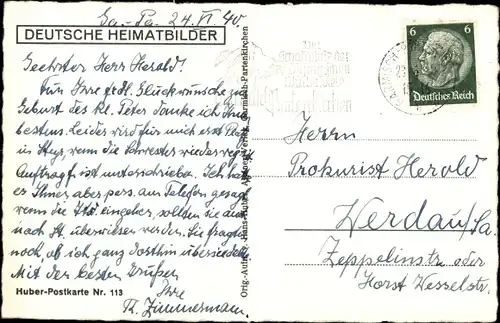 Ga.-Pa. 24. VI. 40
DEUTSCHE HEIMATBILDER
Geehrter Herr Herold!
Für Ihre frdl. Glückwünsche zur
Geburt des kl. Peter danke ich Ihnen
bestens. Leider wird für mich erst
in wenn die Schwester wieder
Auftragt ist unterschrieben. Ich hab
es Ihnen aber pers. am Telefon gesagt
wenn die eingehen, sollten sie auch
nach überwiesen werden. Sie fragten
noch, ob ich ganz dorthin übersiedle.
Mit den besten Grüßen
Huber-Postkarte Nr. 113
Ihre
Zimmermann
Hans Huber, Garmisch-Partenkirchen
6 6
Deutsches Reich
Herrn
Prokurist Herold
Werdau/Sa.
Zeppelinstr. oder
Horst Wesselstr.